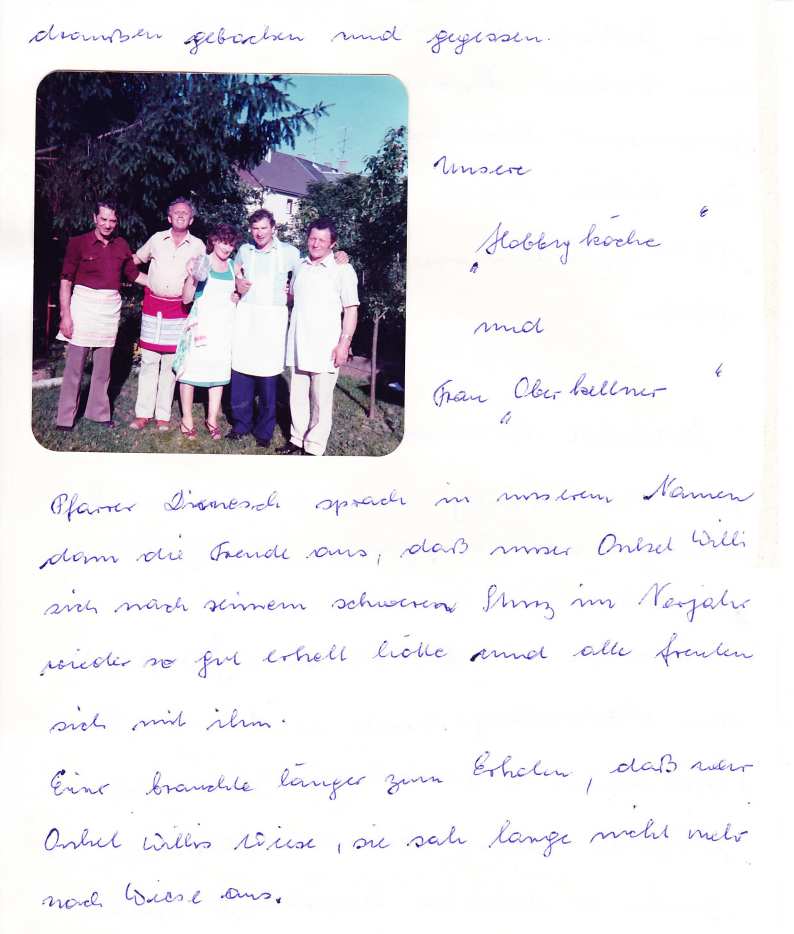 draußen gebacken und gegessen.
Unsere
"Hobbyköche"
und
Frau "Oberkellner"
Pfarrer sprach in unserem Namen
dann die Freude aus, daß unser Onkel Willi
sich nach seinem schweren Sturz im Vorjahr
wieder so gut erholt hätte und alle freuten
sich mit ihm.
Einer brauchte länger zum Erholen, daß war
Onkel Willis Wiese, sie sah lange nicht mehr
nach Wiese aus.